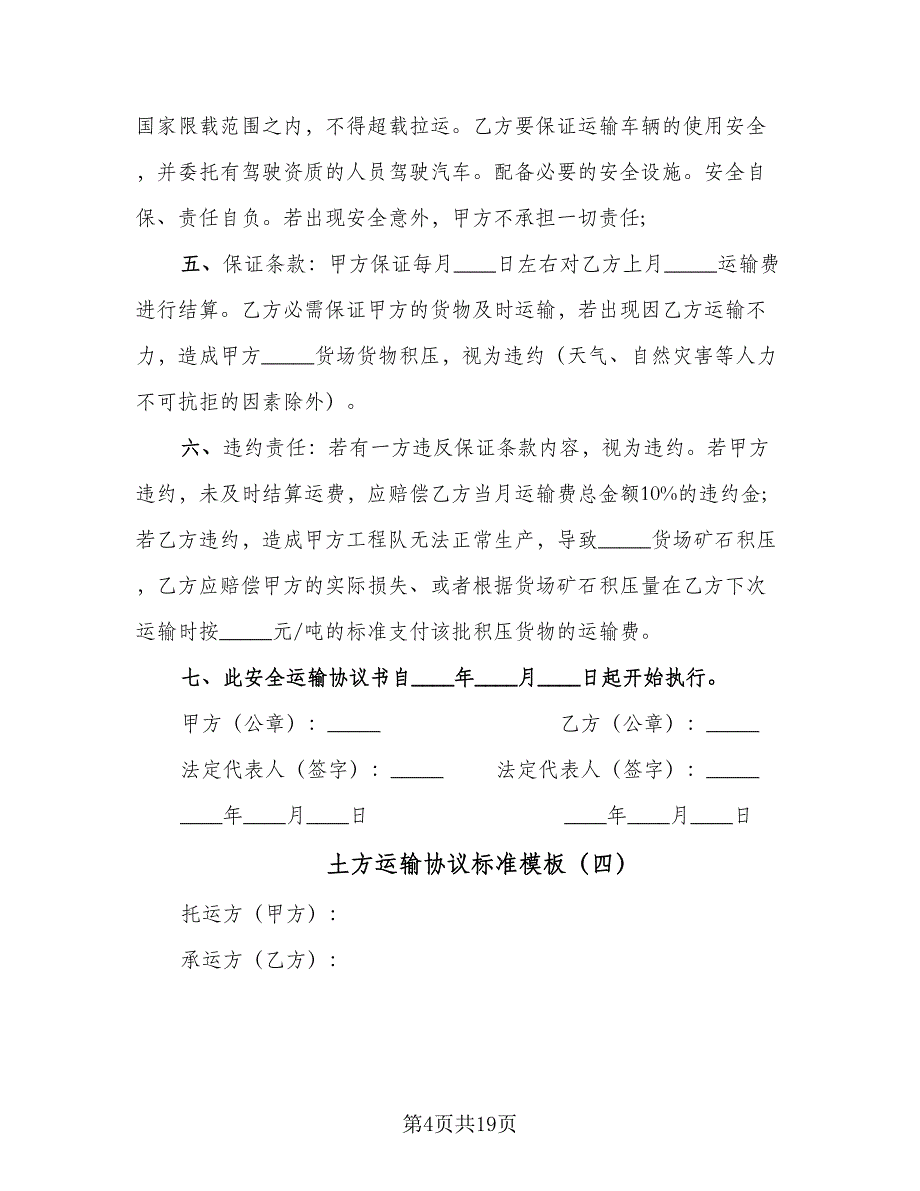 国家限载范围之内，不得超载拉运。乙方要保证运输车辆的使用安全
，并委托有驾驶资质的人员驾驶汽车。配备必要的安全设施。安全自
保、责任自负。若出现安全意外，甲方不承担一切责任;
五、保证条款：甲方保证每月____日左右对乙方上月_____运输费
进行结算。乙方必需保证甲方的货物及时运输，若出现因乙方运输不
力，造成甲方_____货场货物积压，视为违约（天气、自然灾害等人力
不可抗拒的因素除外）。
六、违约责任：若有一方违反保证条款内容，视为违约。若甲方
违约，未及时结算运费，应赔偿乙方当月运输费总金额10%的违约金;
若乙方违约，造成甲方工程队无法正常生产，导致_____货场矿石积压
，乙方应赔偿甲方的实际损失、或者根据货场矿石积压量在乙方下次
运输时按_____元/吨的标准支付该批积压货物的运输费。
七、此安全运输协议书自____年____月____日起开始执行。
甲方（公章）：_____ 乙方（公章）：_____
法定代表人（签字）：_____ 法定代表人（签字）：_____
____年____月____日 ____年____月____日
土方运输协议标准模板（四）
托运方（甲方）：
承运方（乙方）：
第4页共19页